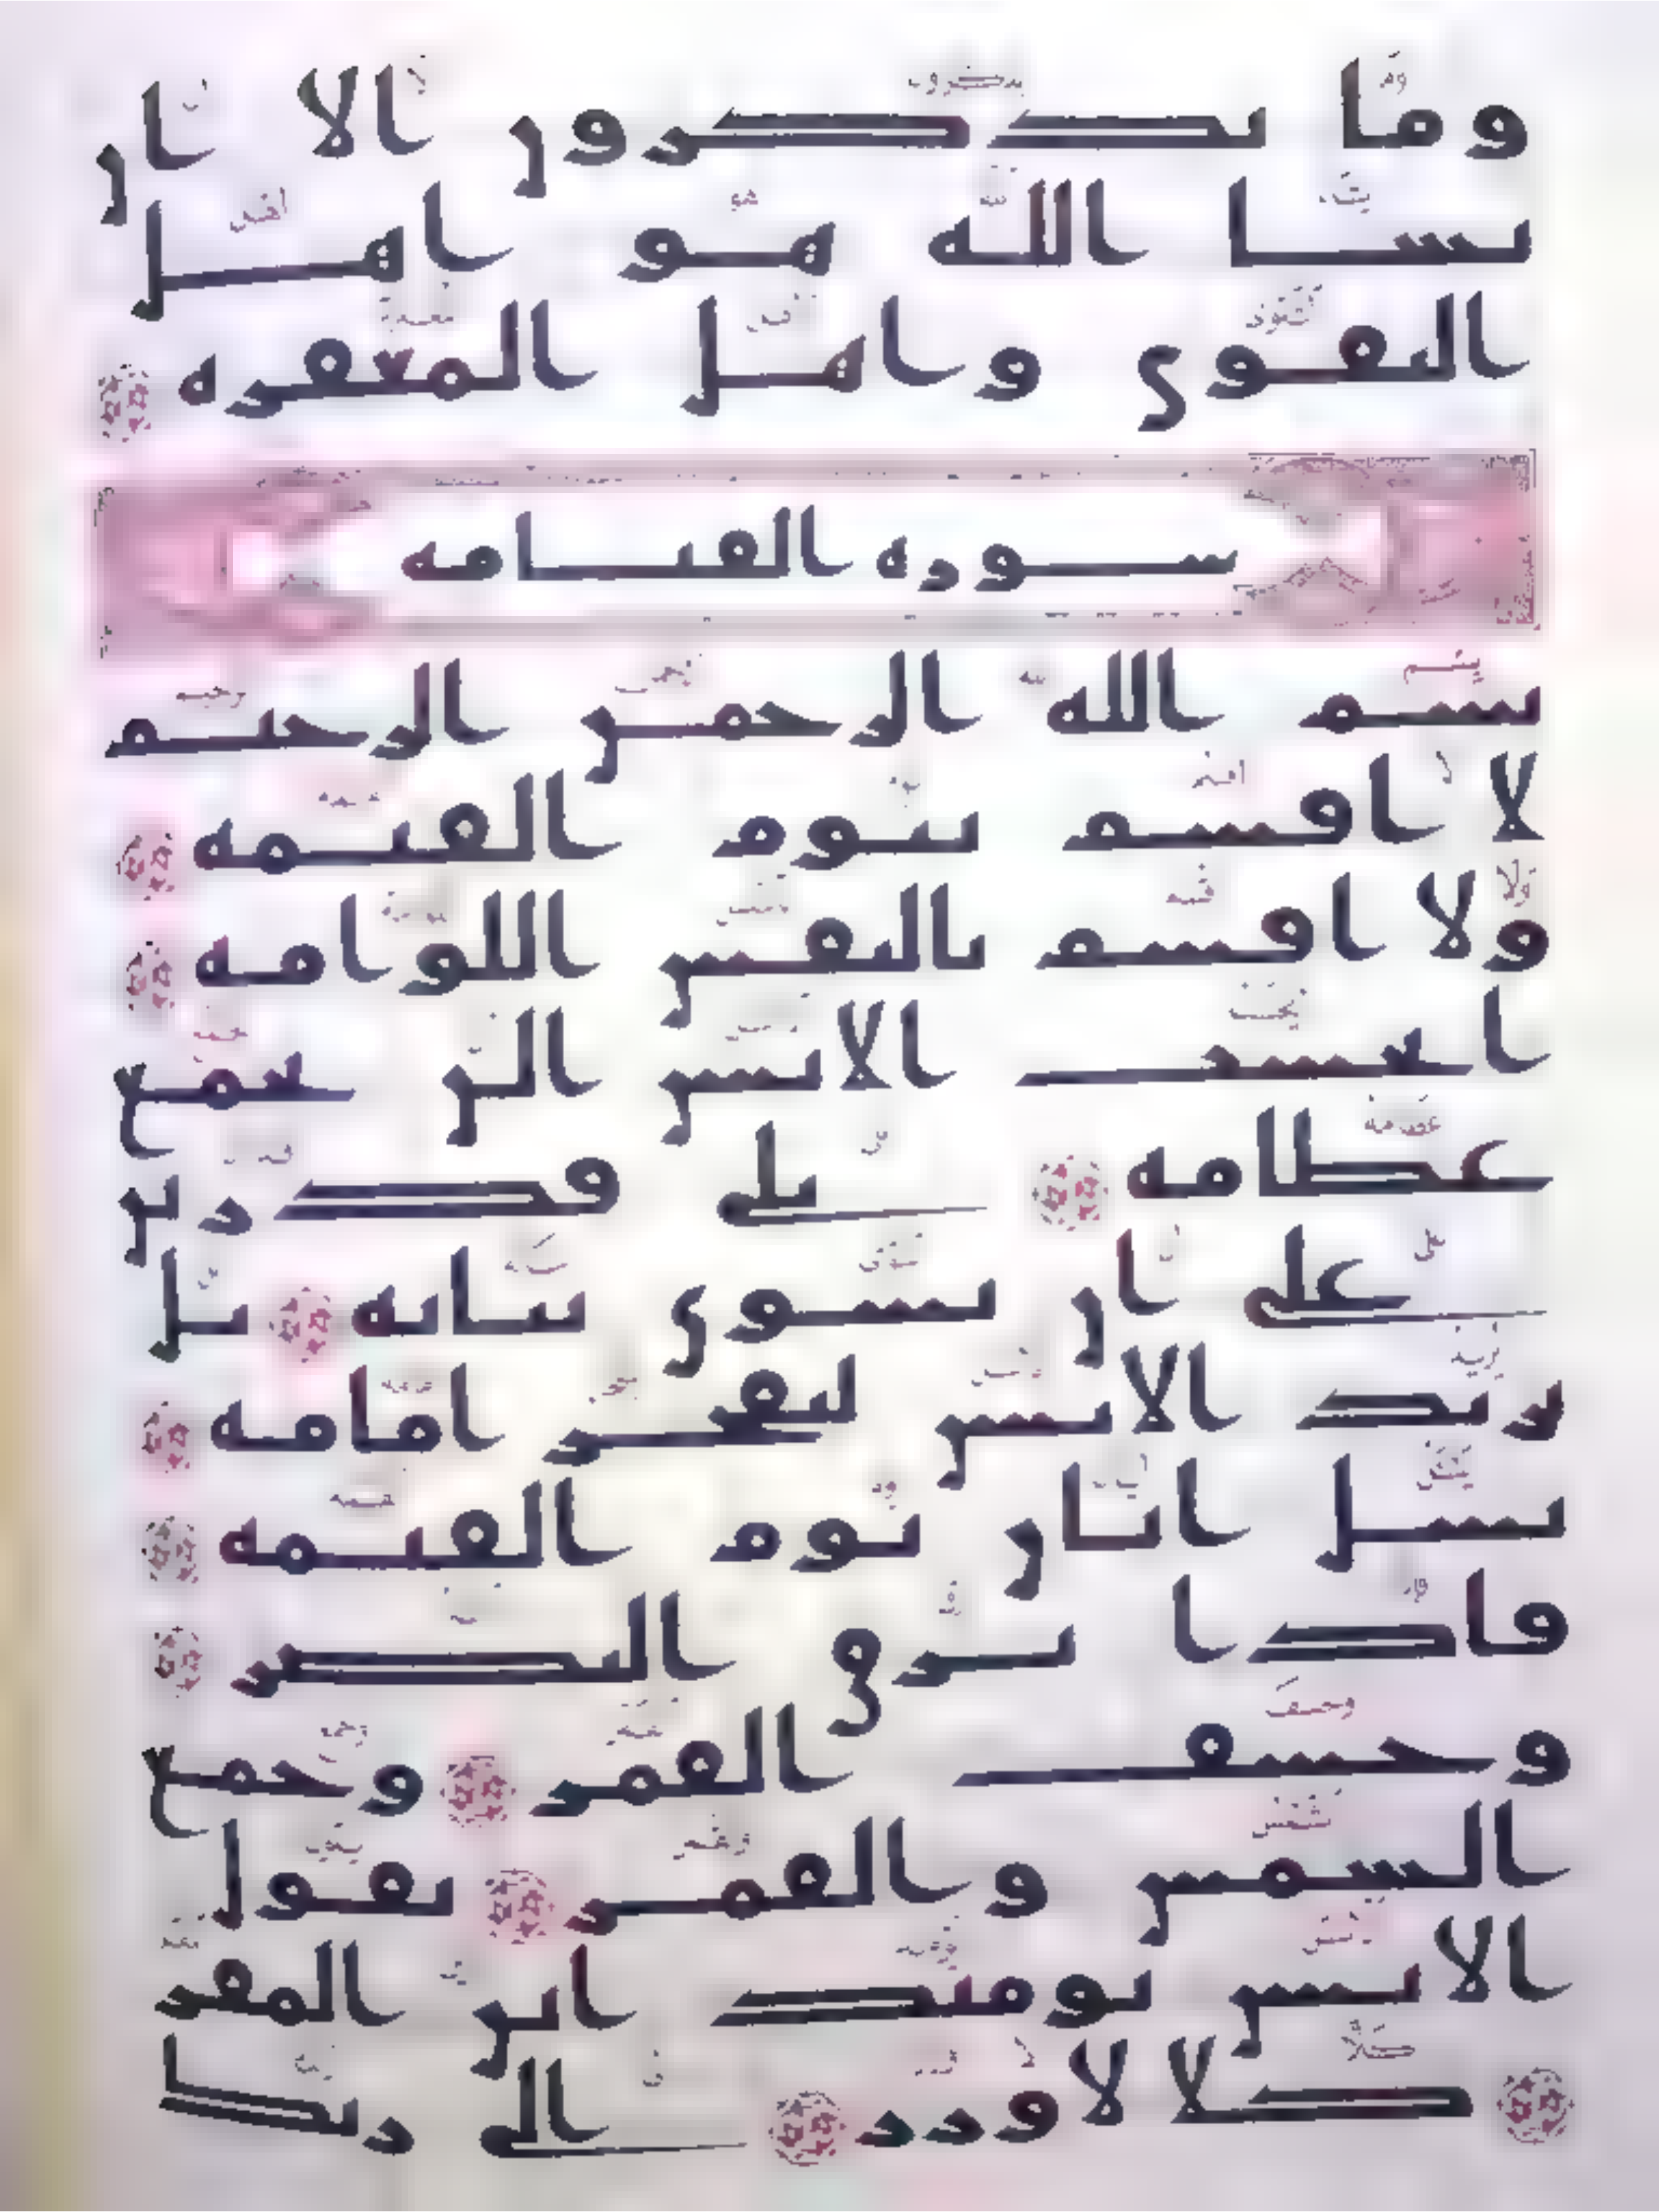 وما يذكرون الا ان
يشا الله هو اهل
التقوى واهل المغفره
سوره القيامه
بسم الله الرحمن الرحيم
لا اقسم بيوم القيمه
ولا اقسم بالنفس اللوامه
ايحسب الانسن الن نجمع
عظامه بلى قدرين
على ان نسوى بنانه بل
يريد الانسن ليفجر امامه
يسل ايان يوم القيمه
فاذا برق البصر
وخسف القمر وجمع
الشمس والقمر يقول
الانسن يومئذ اين المفر
كلا لا وزر الى ربك